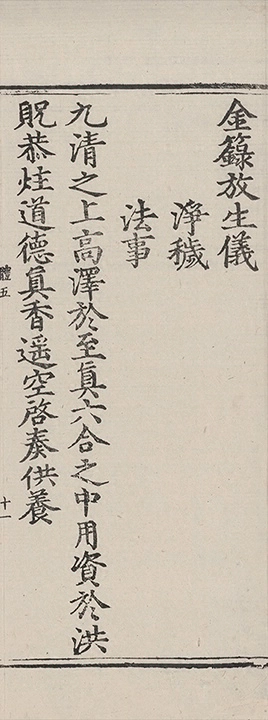 金籙放生儀
淨穢
法事
九清之上高澤於至真六合之中用資於洪
貺恭炷道德真香遥空啓奏供養
體五
十一